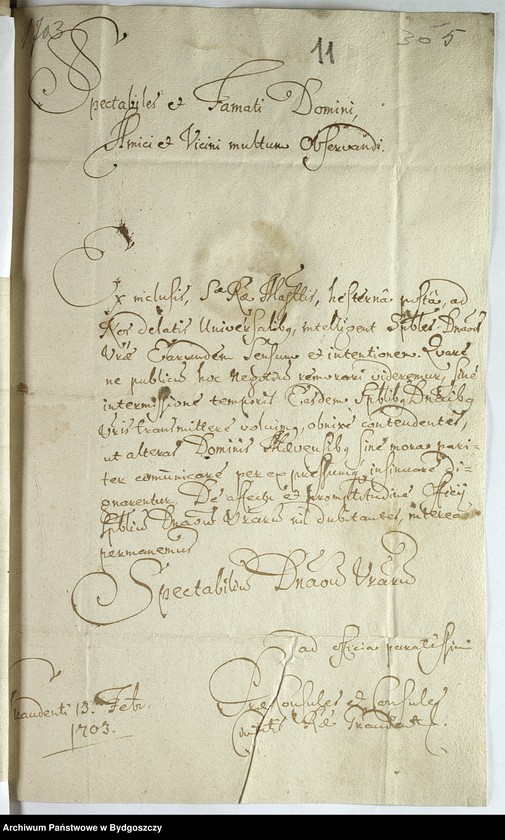 1703 11 305
Spectabiles et Famati Domini,
Amici et Vicini multum Observandi.
Ex inclusis, Sae Rae Mattis, hesternâ postâ, ad
Nos delatis Universalibq, intelligent Spbles Dnaoes
Vrae Earundem Sensum et intentionem. Quare
ne publicum hoc negotium remorari videremur, sine
intermissione temporis Easdem Spblibq Dnaoibq
Vris transmittere voluimq, obnixe contendentes,
ut alteras Dominis Mevensibq sine mora pari-
ter comunicare per expressum, insinuare Di-
gnarentur. De affectu et promptitudine Officij
Spblium Dnaoum Vrarum nil dubitantes, interea
permanemus
Spectabilium Dnaoum Vrarum
ad officia paratissimi
Graudenti 13. Febr. Praeconsules et Consules
1703. Civitatis Rae Graudent.
Archiwum Państwowe w Bydgoszczy